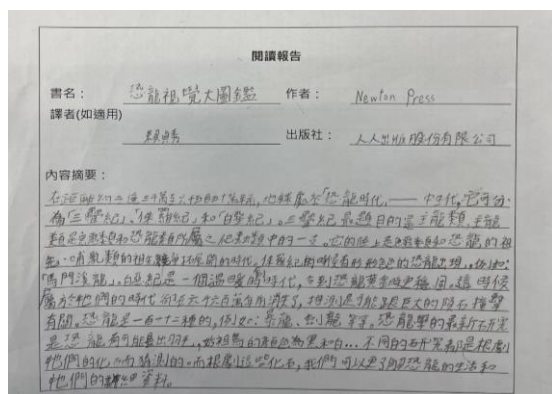 閱讀報告
書名： 恐龍視覺大圖鑑 作者： Newton Press
譯者(如適用)
出版社： 人人出版股份有限公司
內容摘要：
在距離約二億五千萬至六千六百萬年前,地球處於「恐龍時代」—— 中生代,它可分
為「三疊紀」、「侏羅紀」和「白堊紀」。三疊紀最趣目的是主龍類,主龍
類是鱷類和恐龍類所屬之爬蟲類中的一支。它的陸上是鱷類和恐龍的祖
先、哺乳類的祖先 的時代,侏羅紀時期有形形色色的恐龍出現,例如:
馬門溪龍,白堊紀是一個溫暖的時代,令到恐龍 這時候
屬於牠們的時代卻在六千六百萬年前消失了,推測是可能跟巨大的隕石撞擊
有關。恐龍是一百一十二種的,例如:暴龍、劍龍等等。恐龍學的最新研究
是恐龍有可能長出羽毛, 的顏色為黑和白... 不同的研究都是根據
牠們的化石而猜測的。而根據這些化石,我們可以更了解恐龍的生活和
牠們的詳細資料。